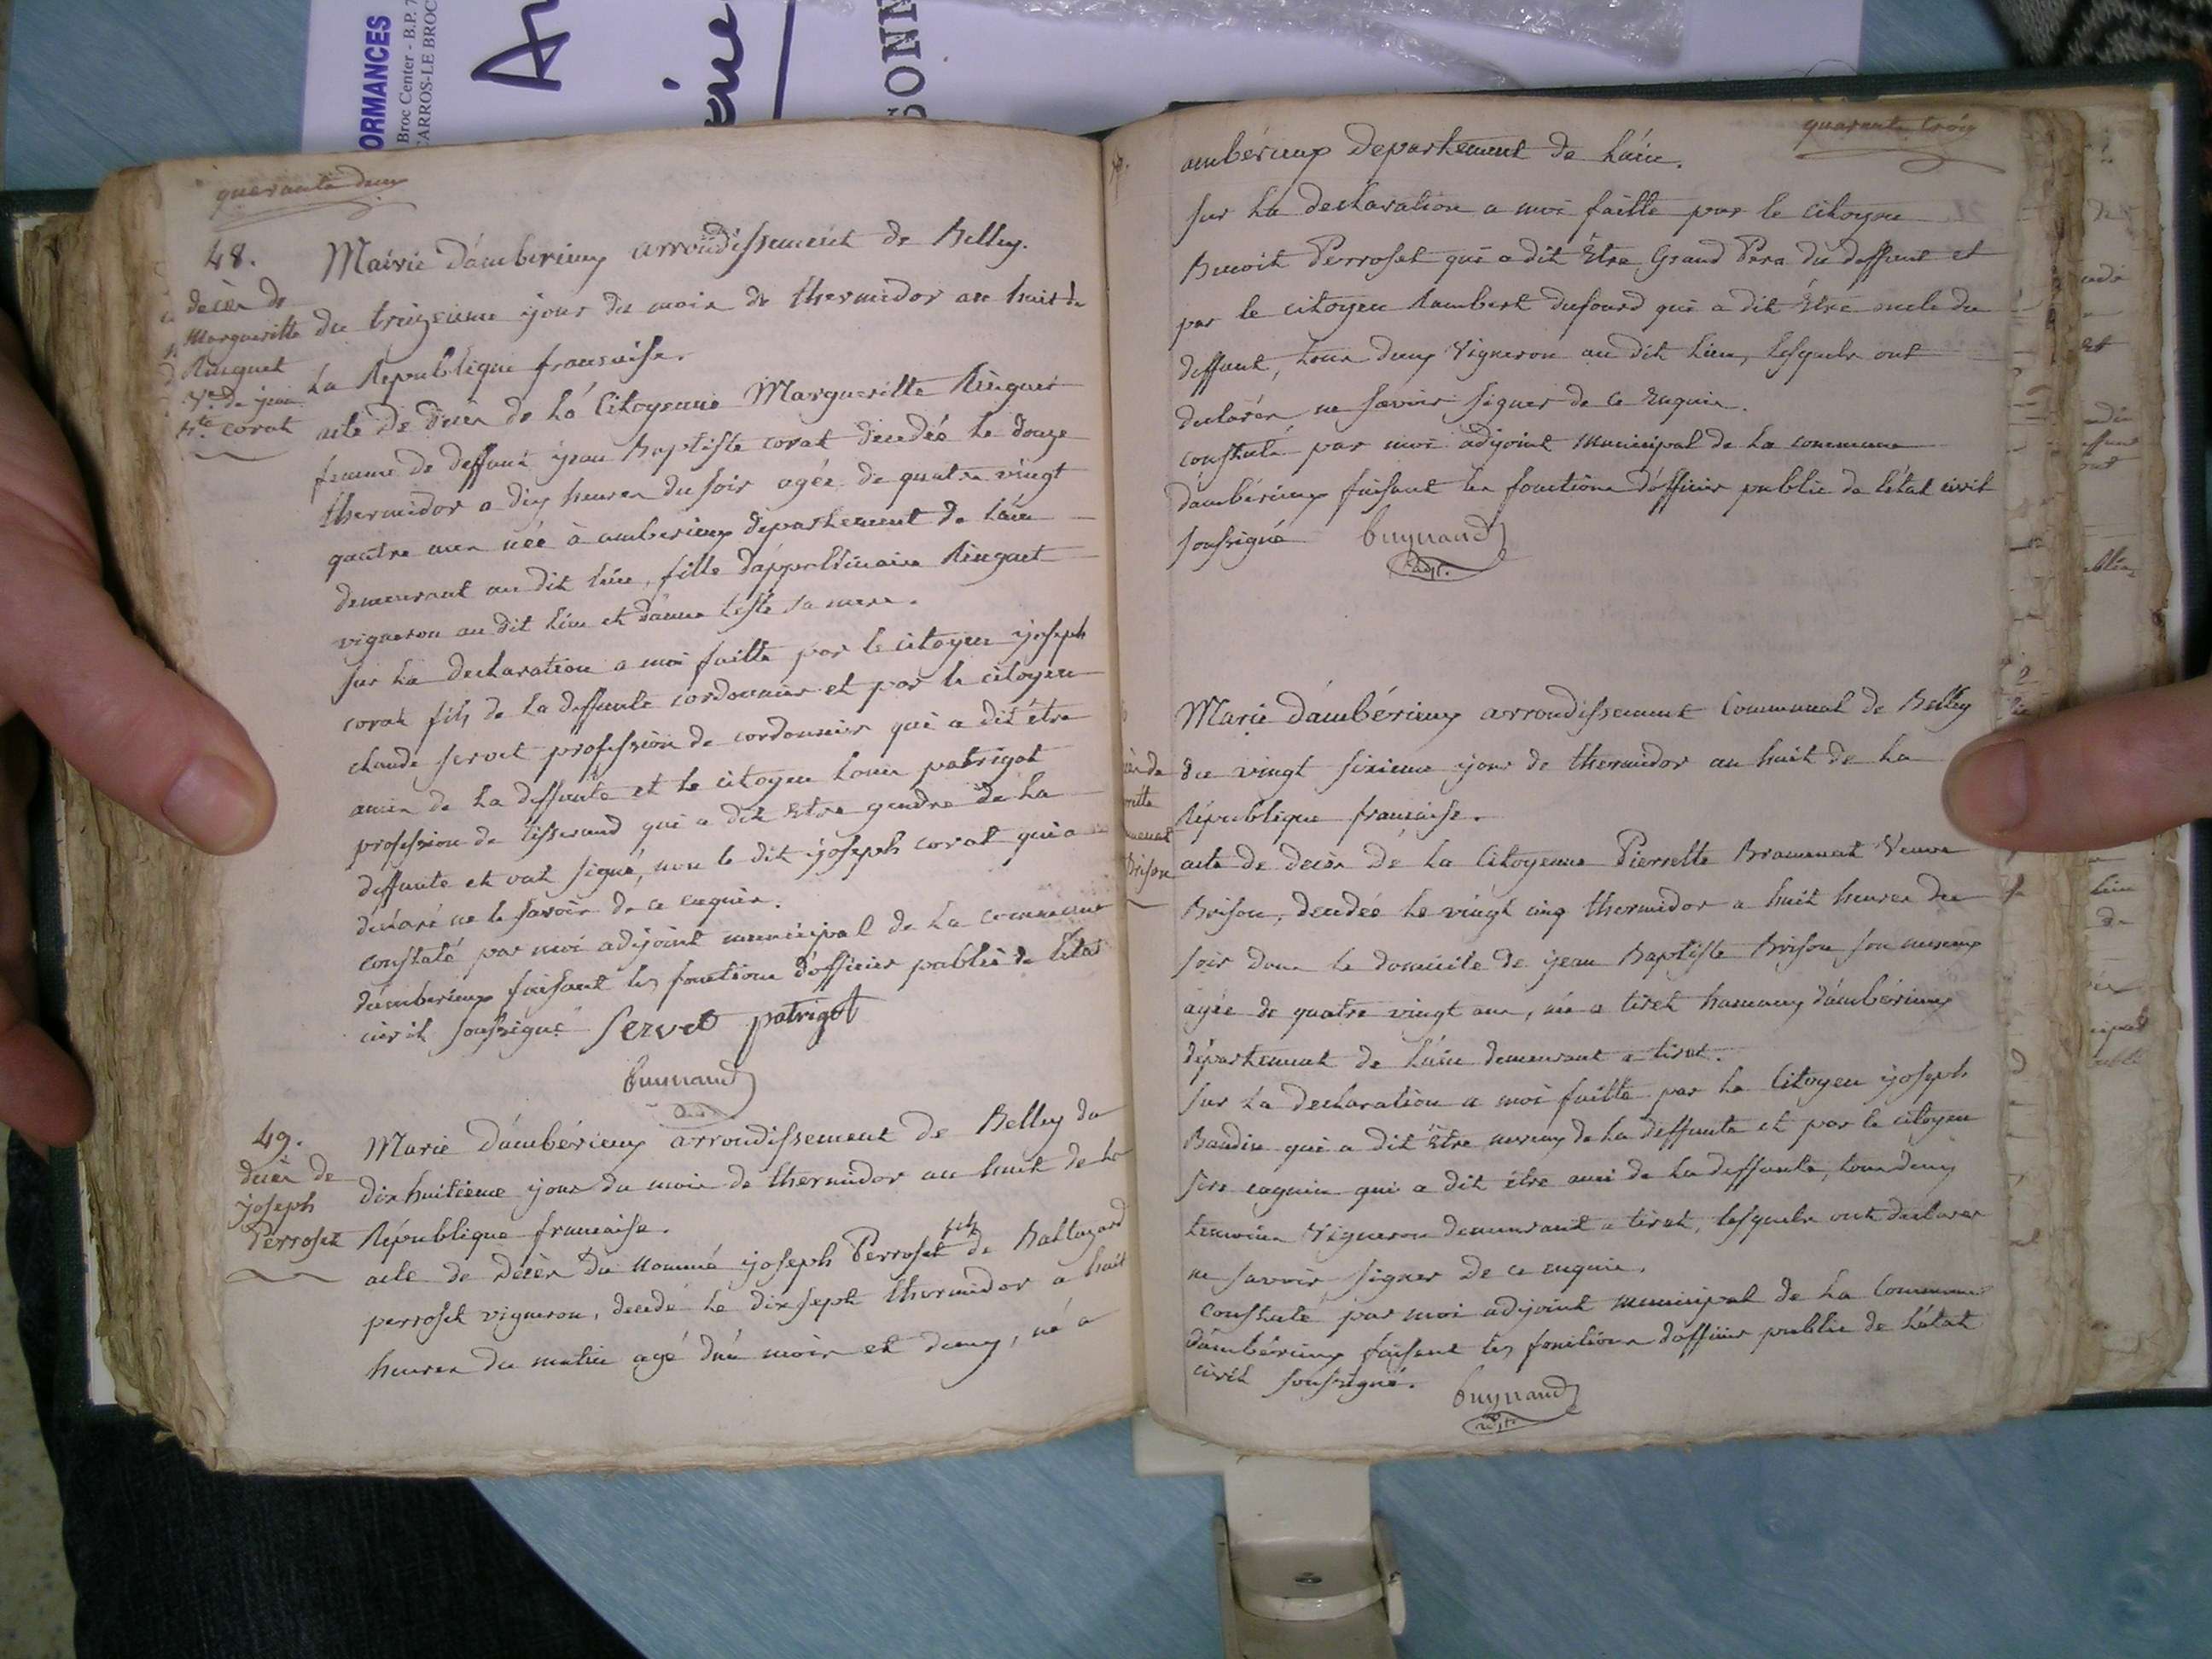 ORMANCES
Broc Center - B.P. 7
CARROS-LE BROC
quarante deux
48.
décès de
Margueritte
Ringuet
Ve. de jean
Bte. corat
Mairie d'amberieux arrondissement de Belley.
du treizieme jour du mois de thermidor an huit de
la Republique francaise.
acte de décès de la Citoyenne Margueritte Ringuet
femme de deffunt jean Baptiste corat décédée le douze
thermidor a dix heures du soir agée de quatre vingt
quatre ans née à amberieux département de l'ain
demeurant au dit lieu, fille d'appolinaire Ringuet
vigneron au dit lieu et d'anne teste sa mere.
sur la declaration a moi faitte par le citoyen joseph
corat fils de la deffunte cordonnier et par le citoyen
claude servet profession de cordonnier qui a dit être
amis de la deffunte et le citoyen louis patrigot
profession de tisserand qui a dit Etre gendre de la
deffunte et ont signé, non le dit joseph corat qui a
déclaré ne le savoir de ce enquis.
constaté par moi adjoint municipal de la commune
d'amberieux faisant les fonctions d'officier public de l'état
civil soussigné servet patrigot
buynand
49.
décès de
joseph
Perroset
Marie d'ambérieux arrondissement de Belley du
dix huitieme jour du mois de thermidor an huit de la
République francaise.
acte de décès du nommé joseph Perroset fils de Baltazard
perroset vigneron, décédé le dix sept thermidor a huit
heures du matin agé d'un mois et demy, né a
quarante trois
ambérieux departement de l'ain.
sur la declaration a moi faitte par le citoyen
Benoit Perroset qui a dit Etre Grand Pere du deffunt et
par le citoyen Rambert dufourd qui a dit Etre oncle du
deffunt, tous deux Vigneron au dit lieu, lesquels ont
declarés ne savoir signer de ce Enquis.
constaté par moi adjoint municipal de la commune
d'ambérieux faisant les fonctions d'officier public de l'état civil
soussigné buynand
adjt.
Marie d'ambérieux arrondissement Communal de Belley
du vingt sixieme jour de thermidor an huit de la
République francaise.
acte de décès de la Citoyenne Pierrette Bramenat Veuve
Brison, décédée le vingt cinq thermidor a huit heures du
soir dans le domicile de jean Baptiste Brison son neveux
agée de quatre vingt ans, née a tiret hameaux d'ambérieux
département de l'ain demeurant a tiret.
sur la declaration a moi faitte par le Citoyen joseph
Baudin qui a dit Etre neveux de la deffunte et par le citoyen
qui a dit être ami de la deffunte, tous deux
temoins Vigneron demeurant a tiret, lesquels ont declarer
ne savoir signer de ce enquis.
constaté par moi adjoint municipal de la Commune
d'ambérieux faisant les fonctions d'officier public de l'état
civil soussigné. buynand
adjt.